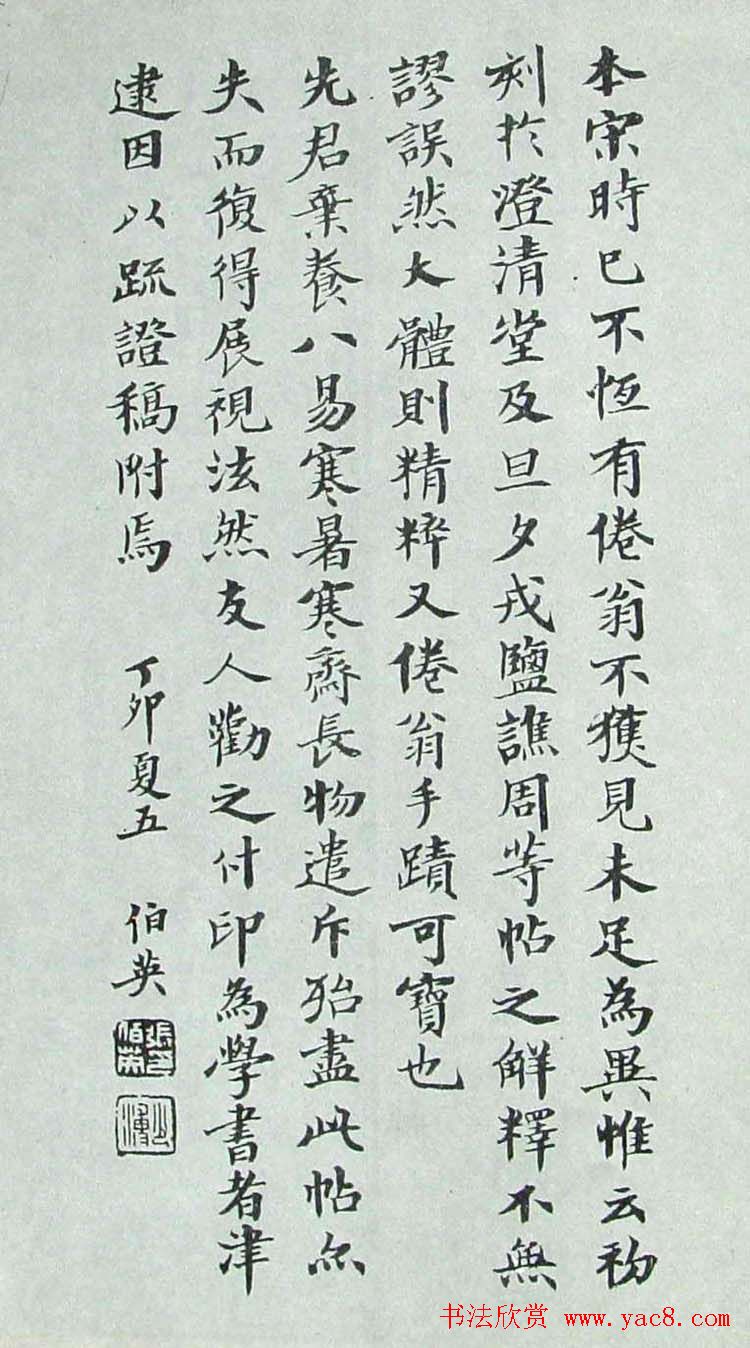 本宋時已不恆有倦翁不獲見未足為異惟云初
刻於澄清堂及旦夕戎鹽譙周等帖之解釋不無
謬誤然大體則精粹又倦翁手蹟可寶也
先君棄養八易寒暑寒齋長物遣斥殆盡此帖亦
失而復得展視泫然友人勸之付印為學書者津
逮因以疏證稿附焉 丁卯夏五 伯英
張伯英
书法欣赏 www.yac8.com